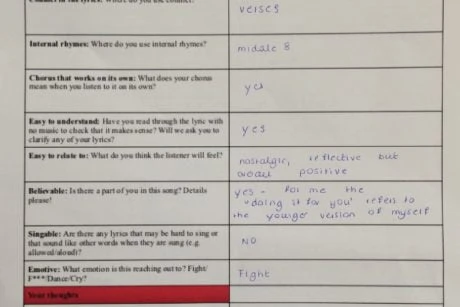 verses
Internal rhymes: Where do you use internal rhymes?
midale 8
Chorus that works on its own: What does your chorus
mean when you listen to it on its own?
yes
Easy to understand: Have you read through the lyric with
no music to check that it makes sense? Will we ask you to
clarify any of your lyrics?
yes
Easy to relate to: What do you think the listener will feel?
nostalgic, reflective but
positive
Believable: Is there a part of you in this song? Details
please!
yes - For me the
"doing it for you" refers to
the younger version of myself
Singable: Are there any lyrics that may be hard to sing or
that sound like other words when they are sung (e.g.
allowed/aloud)?
NO
Emotive: What emotion is this reaching out to? Fight/
F***/Dance/Cry?
Fight
Your thoughts